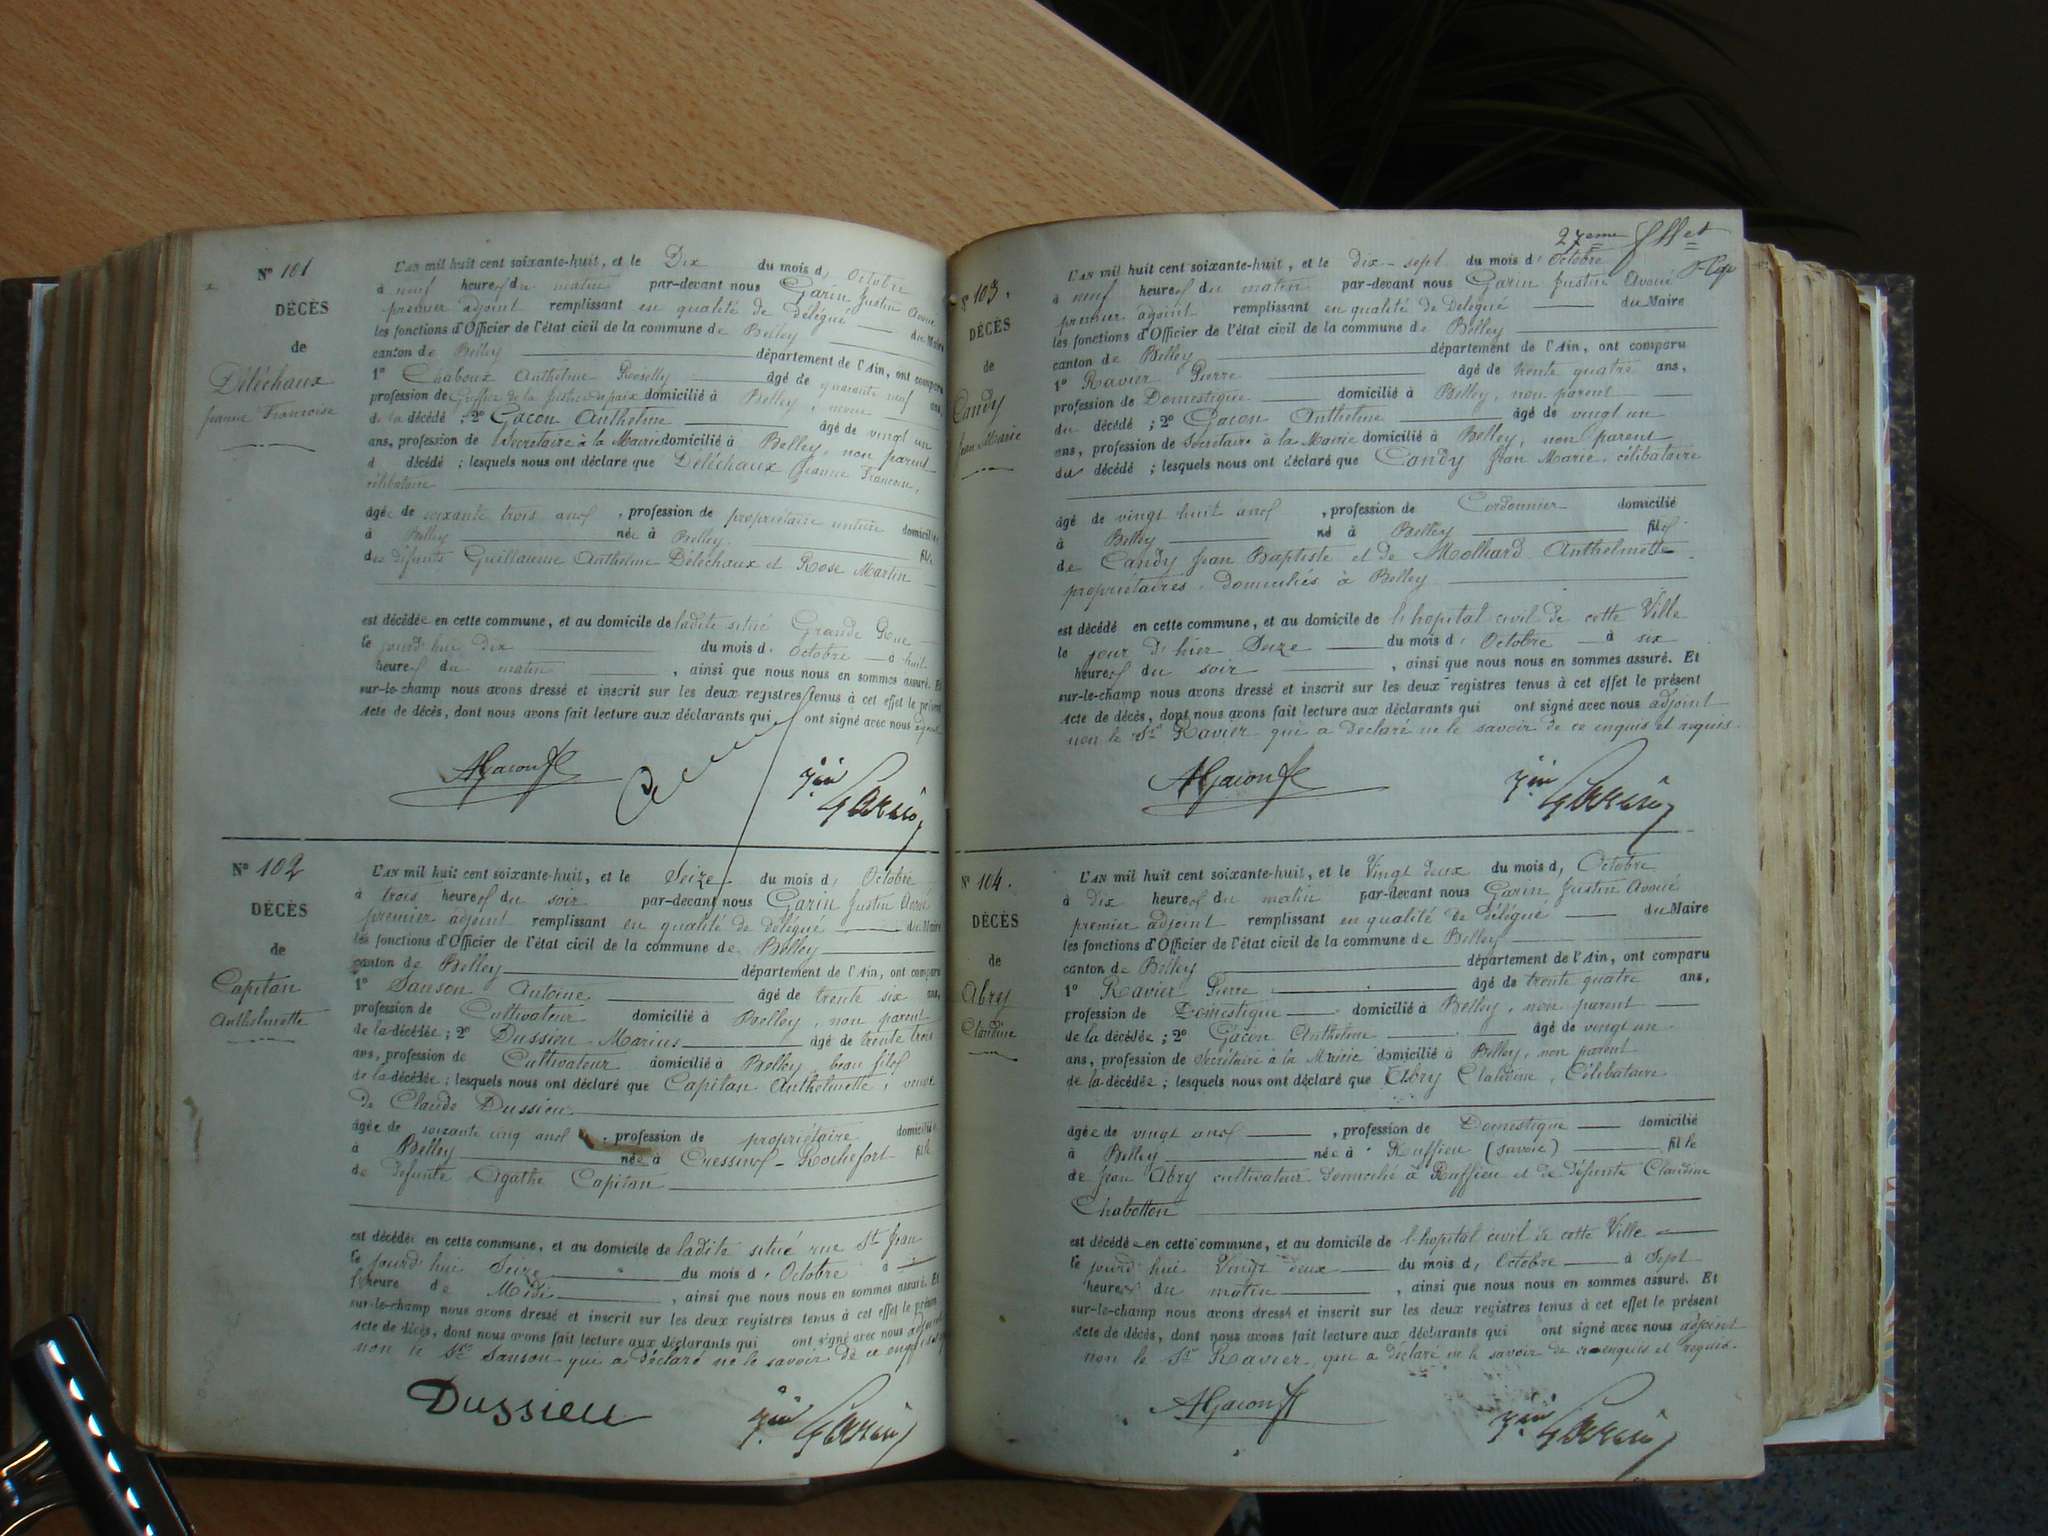 N° 101
DÉCÈS
de
Déléchaux
Jeanne Françoise
L'AN mil huit cent soixante-huit, et le Dix du mois d, Octobre
à neuf heures du matin par-devant nous Garin Justin Avoué
premier adjoint remplissant en qualité de délégué du Maire
les fonctions d'Officier de l'état civil de la commune de Belley
canton de Belley département de l'Ain, ont comparu
1° Chaboux Anthelme Roselly âgé de quarante neuf ans,
profession de Greffier de la Justice de paix domicilié à Belley, non
de la décédé ; 2° Gacon Anthelme âgé de vingt un
ans, profession de Secrétaire à la Mairie domicilié à Belley, non parent
d décédé ; lesquels nous ont déclaré que Déléchaux Jeanne Françoise,
célibataire
âgée de soixante trois ans, profession de propriétaire domicilié
à Belley née à Belley fille
des défunts Guillaume Anthelme Déléchaux et Rose Martin
est décédée en cette commune, et au domicile de ladite situé Grande Rue
le jourd'hui dix du mois d. Octobre à huit
heures du matin, ainsi que nous nous en sommes assuré. Et
sur-le-champ nous avons dressé et inscrit sur les deux registres tenus à cet effet le présent
acte de décès, dont nous avons fait lecture aux déclarants qui ont signé avec nous adjoint
AGacon
Garin
N° 102
DÉCÈS
de
Capitan
Anthelmette
L'AN mil huit cent soixante-huit, et le Seize du mois d, Octobre
à trois heures du soir par-devant nous Garin Justin Avoué
premier adjoint remplissant en qualité de délégué du Maire
les fonctions d'Officier de l'état civil de la commune de Belley
canton de Belley département de l'Ain, ont comparu
1° Sanson Antoine âgé de trente six ans,
profession de Cultivateur domicilié à Belley, non parent
de la décédée ; 2° Dussieu Marius âgé de trente trois
ans, profession de Cultivateur domicilié à Belley beau fils
de la décédée ; lesquels nous ont déclaré que Capitan Anthelmette, veuve
de Claude Dussieu
âgée de soixante cinq ans, profession de propriétaire domicilié
à Belley née à Cressin-Rochefort fille
de défunte Agathe Capitan
est décédée en cette commune, et au domicile de ladite situé rue St Jean
le jourd'hui Seize du mois d, Octobre à
l'heure de Midi, ainsi que nous nous en sommes assuré. Et
sur-le-champ nous avons dressé et inscrit sur les deux registres tenus à cet effet le présent
acte de décès, dont nous avons fait lecture aux déclarants qui ont signé avec nous adjoint
non le Sr Sanson qui a déclaré ne le savoir de ce enquis
Dussieu
Garin
27eme fllet
N° 103.
DÉCÈS
de
Candy
Jean Marie
L'AN mil huit cent soixante-huit, et le dix-sept du mois d, Octobre
à neuf heures du matin par-devant nous Garin Justin Avoué
premier adjoint remplissant en qualité de Délégué du Maire
les fonctions d'Officier de l'état civil de la commune de Belley
canton de Belley département de l'Ain, ont comparu
1° Ravier Pierre âgé de trente quatre ans,
profession de Domestique domicilié à Belley, non parent
du décédé ; 2° Gacon Anthelme âgé de vingt un
ans, profession de Secrétaire à la Mairie domicilié à Belley, non parent
du décédé ; lesquels nous ont déclaré que Candy Jean Marie, célibataire
âgé de vingt huit ans, profession de Cordonnier domicilié
à Belley né à Belley fils
de Candy Jean Baptiste et de Molliard Anthelmette
propriétaires domiciliés à Belley
est décédé en cette commune, et au domicile de l'hopital civil de cette Ville
le jour d'hier Seize du mois d, Octobre à six
heures du soir, ainsi que nous nous en sommes assuré. Et
sur-le-champ nous avons dressé et inscrit sur les deux registres tenus à cet effet le présent
acte de décès, dont nous avons fait lecture aux déclarants qui ont signé avec nous adjoint
non le Sr Ravier qui a déclaré ne le savoir de ce enquis et requis.
AGacon
Garin
N° 104.
DÉCÈS
de
Abry
Claudine
L'AN mil huit cent soixante-huit, et le Vingt deux du mois d, Octobre
à dix heures du matin par-devant nous Garin Justin Avoué
premier adjoint remplissant en qualité de délégué du Maire
les fonctions d'Officier de l'état civil de la commune de Belley
canton de Belley département de l'Ain, ont comparu
1° Ravier Pierre âgé de trente quatre ans,
profession de Domestique domicilié à Belley, non parent
de la décédée ; 2° Gacon Anthelme âgé de vingt un
ans, profession de Secrétaire à la Mairie domicilié à Belley, non parent
de la décédée ; lesquels nous ont déclaré que Abry Claudine, Célibataire
âgée de vingt ans, profession de Domestique domicilié
à Belley née à Ruffieu (Savoie) fille
de Jean Abry cultivateur domicilié à Ruffieu et de défunte Claudine
Chabetton
est décédée en cette commune, et au domicile de l'hopital civil de cette Ville
le jourd'hui Vingt deux du mois d, Octobre à Sept
heures du matin, ainsi que nous nous en sommes assuré. Et
sur-le-champ nous avons dressé et inscrit sur les deux registres tenus à cet effet le présent
acte de décès, dont nous avons fait lecture aux déclarants qui ont signé avec nous adjoint
non le Sr Ravier, qui a déclaré ne le savoir de ce enquis et requis.
AGacon
Garin